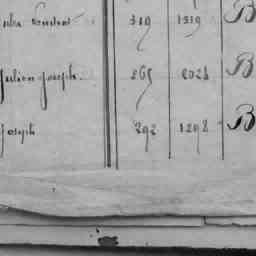 319 1219 B
Julien Joseph. 265 2024 B
Joseph 292 1298 B